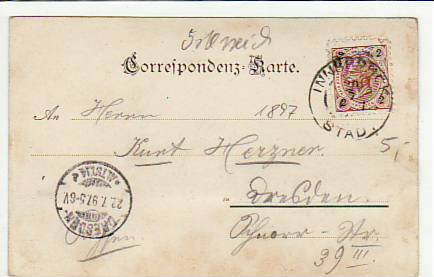 Correspondenz-Karte.
2
INNSBRUCK
STADT
An Herrn
1897
Kurt Herzner
5,-
DRESDEN-ALTST.14
22.7.97.5-6V.
Dresden
Schnorr-Str.
39 III.